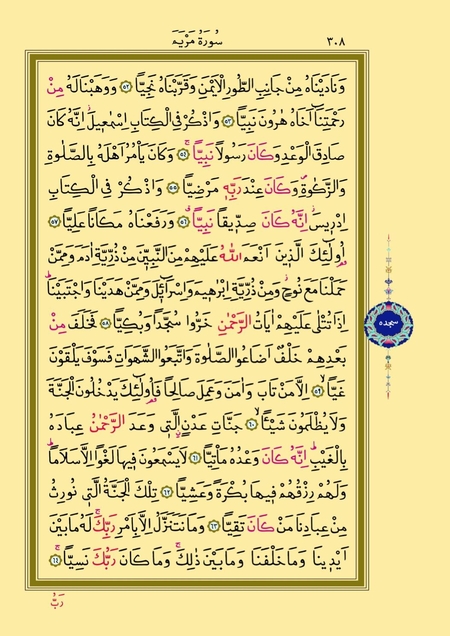 سُورَةُ مَرْيَمَ ٣٠٨
وَنَادَيْنَاهُ مِنْ جَانِبِ الطُّورِ الْاَيْمَنِ وَقَرَّبْنَاهُ نَجِيًّا ﴿٥٢﴾ وَوَهَبْنَا لَهُ مِنْ
رَحْمَتِنَٓا اَخَاهُ هٰرُونَ نَبِيًّا ﴿٥٣﴾ وَاذْكُرْ فِي الْكِتَابِ اِسْمٰعٖيلَۘ اِنَّهُ كَانَ
صَادِقَ الْوَعْدِ وَكَانَ رَسُولاً نَبِيًّا ﴿٥٤﴾ وَكَانَ يَأْمُرُ اَهْلَهُ بِالصَّلٰوةِ
وَالزَّكٰوةِۖ وَكَانَ عِنْدَ رَبِّهٖ مَرْضِيًّا ﴿٥٥﴾ وَاذْكُرْ فِي الْكِتَابِ
اِدْرٖيسَۘ اِنَّهُ كَانَ صِدّٖيقًا نَبِيًّا ﴿٥٦﴾ وَرَفَعْنَاهُ مَكَانًا عَلِيًّا ﴿٥٧﴾
اُو۬لٰٓئِكَ الَّذٖينَ اَنْعَمَ اللّٰهُ عَلَيْهِمْ مِنَ النَّبِيّٖنَ مِنْ ذُرِّيَّةِ اٰدَمَ وَمِمَّنْ
حَمَلْنَا مَعَ نُوحٍۘ وَمِنْ ذُرِّيَّةِ اِبْرٰهٖيمَ وَاِسْرَٓائٖلَ وَمِمَّنْ هَدَيْنَا وَاجْتَبَيْنَاۜ
اِذَا تُتْلٰى عَلَيْهِمْ اٰيَاتُ الرَّحْمٰنِ خَرُّوا سُجَّدًا وَبُكِيًّا ﴿٥٨﴾ فَخَلَفَ مِنْ
سجده
بَعْدِهِمْ خَلْفٌ اَضَاعُوا الصَّلٰوةَ وَاتَّبَعُوا الشَّهَوَاتِ فَسَوْفَ يَلْقَوْنَ
غَيًّا ﴿٥٩﴾ اِلَّا مَنْ تَابَ وَاٰمَنَ وَعَمِلَ صَالِحًا فَاُو۬لٰٓئِكَ يَدْخُلُونَ الْجَنَّةَ
وَلَا يُظْلَمُونَ شَيْـًٔا ﴿٦٠﴾ جَنَّاتِ عَدْنٍ الَّتٖي وَعَدَ الرَّحْمٰنُ عِبَادَهُ
بِالْغَيْبِۜ اِنَّهُ كَانَ وَعْدُهُ مَأْتِيًّا ﴿٦١﴾ لَا يَسْمَعُونَ فٖيهَا لَغْوًا اِلَّا سَلَامًاۜ
وَلَهُمْ رِزْقُهُمْ فٖيهَا بُكْرَةً وَعَشِيًّا ﴿٦٢﴾ تِلْكَ الْجَنَّةُ الَّتٖي نُورِثُ
مِنْ عِبَادِنَا مَنْ كَانَ تَقِيًّا ﴿٦٣﴾ وَمَا نَتَنَزَّلُ اِلَّا بِاَمْرِ رَبِّكَۚ لَهُ مَا بَيْنَ
اَيْدٖينَا وَمَا خَلْفَنَا وَمَا بَيْنَ ذٰلِكَۚ وَمَا كَانَ رَبُّكَ نَسِيًّاۚ ﴿٦٤﴾
رَبُّ